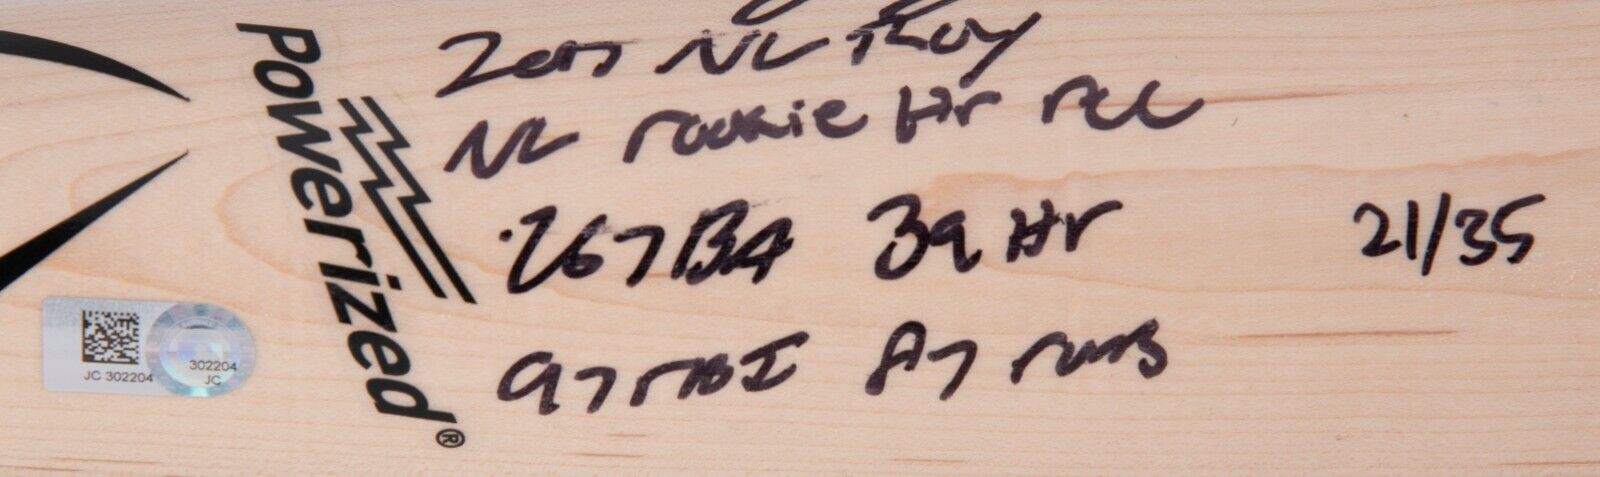 2017 NL Roy
NL rookie Hr rec
.267 BA 39 Hr
21/35
97 rBI 87 runs
Powerized®
JC 302204
302204
JC